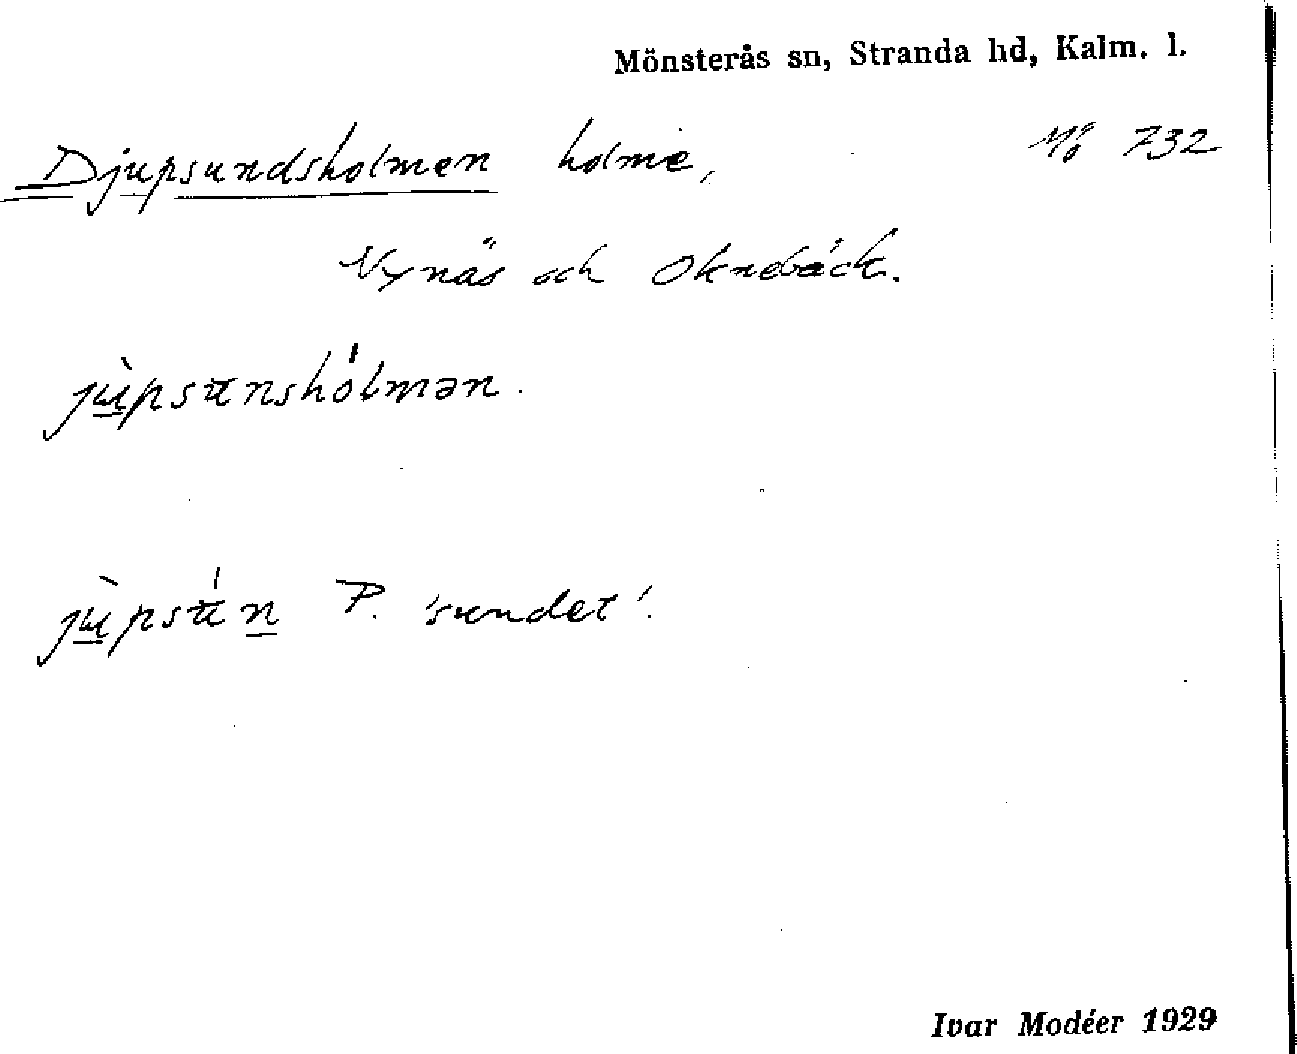 Mönsterås sn, Stranda hd, Kalm. l.
Djupsundsholmen holme, Mö 732
Nynäs och Oknebäck.
jùpsunshólmən.
jùpsún P. 'sundet'.
Ivar Modéer 1929